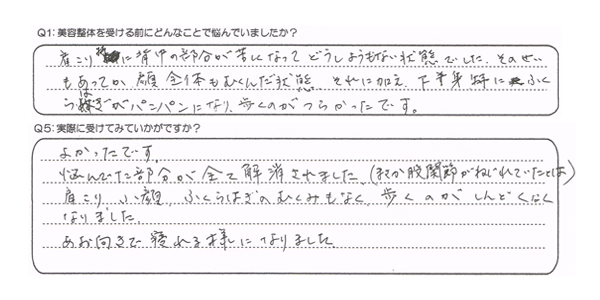 Q1: 美容整体を受ける前にどんなことで悩んでいましたか?
肩こり特に背中の部分が苦しくなってどうしようもない状態でした。そのせい
もあってか顔全体もむくんだ状態 それに加え、下半身特にふく
らはぎがパンパンになり、歩くのがつらかったです。
Q5: 実際に受けてみていかがですか?
よかったです。
悩んでた部分が全て解消されました。(まさか股関節がねじれていたとは)
肩こり、小顔、ふくらはぎのむくみもなく 歩くのが しんどくなく
なりました。
あお向きで寝れる様になりました